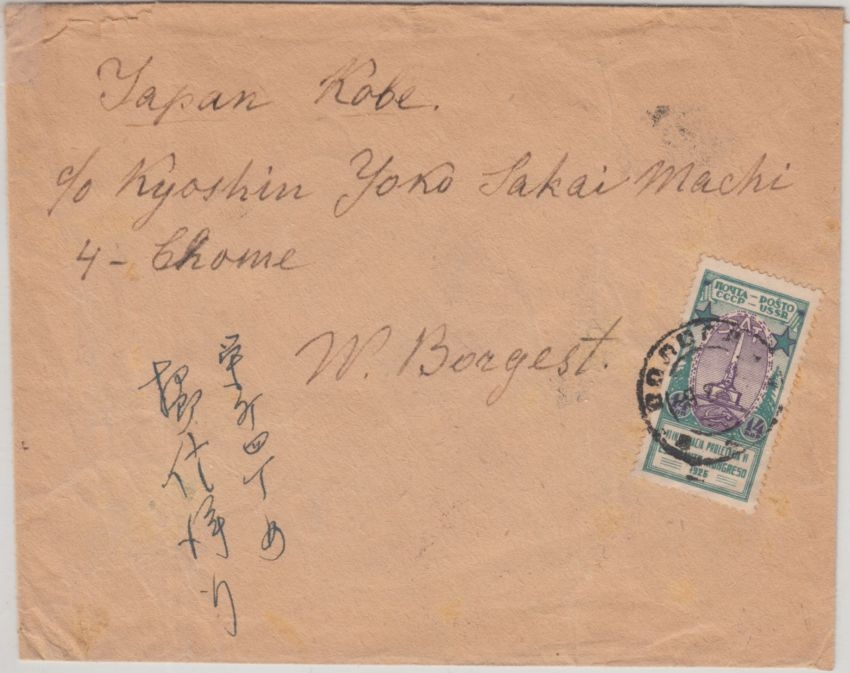 Japan Kobe.
c/o Kyoshin Yoko Sakai Machi
4 - Chome
W. Borgest.
四丁目
洋行
ПОЧТА - POŜTO
СССР - USSR
14
KONGRESO
1926